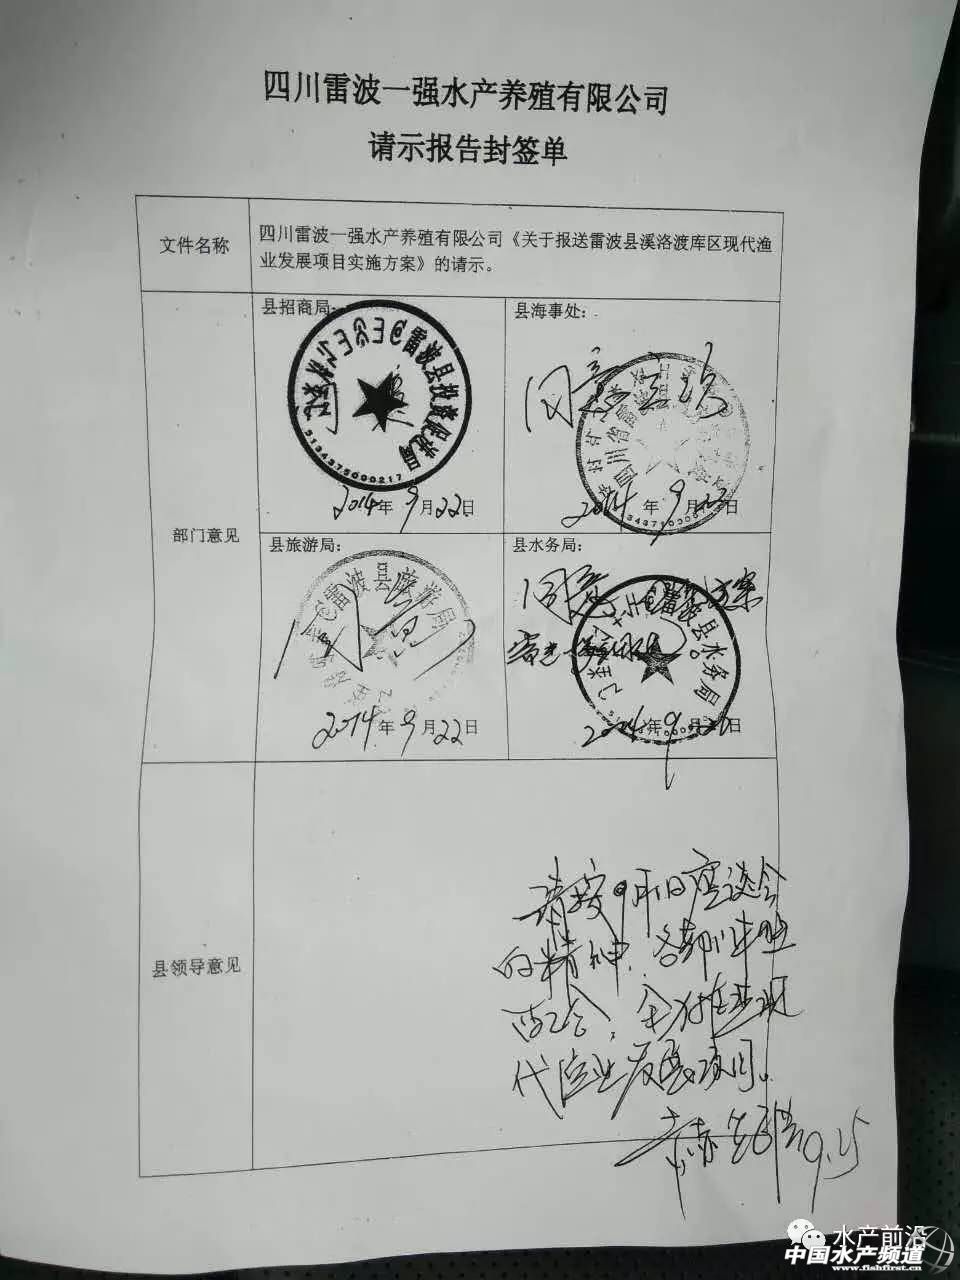 四川雷波一强水产养殖有限公司
请示报告封签单
文件名称
四川雷波一强水产养殖有限公司《关于报送雷波县溪洛渡库区现代渔
业发展项目实施方案》的请示。
部门意见
县招商局：
雷波县投资促进局
5134375000217
2014年9月22日
县海事处：
同意
四川省雷波县
2014年9月22日
县旅游局：
雷波县旅游局
同意
2014年9月22日
县水务局：
同意 方案
雷波县水务局
2014年9月 日
县领导意见
请按9月 日座谈会
的精神，各部门
配合，全力推进现
代渔业发展项目。
9.25
水产前沿
中国水产频道
www.fishfirst.cn